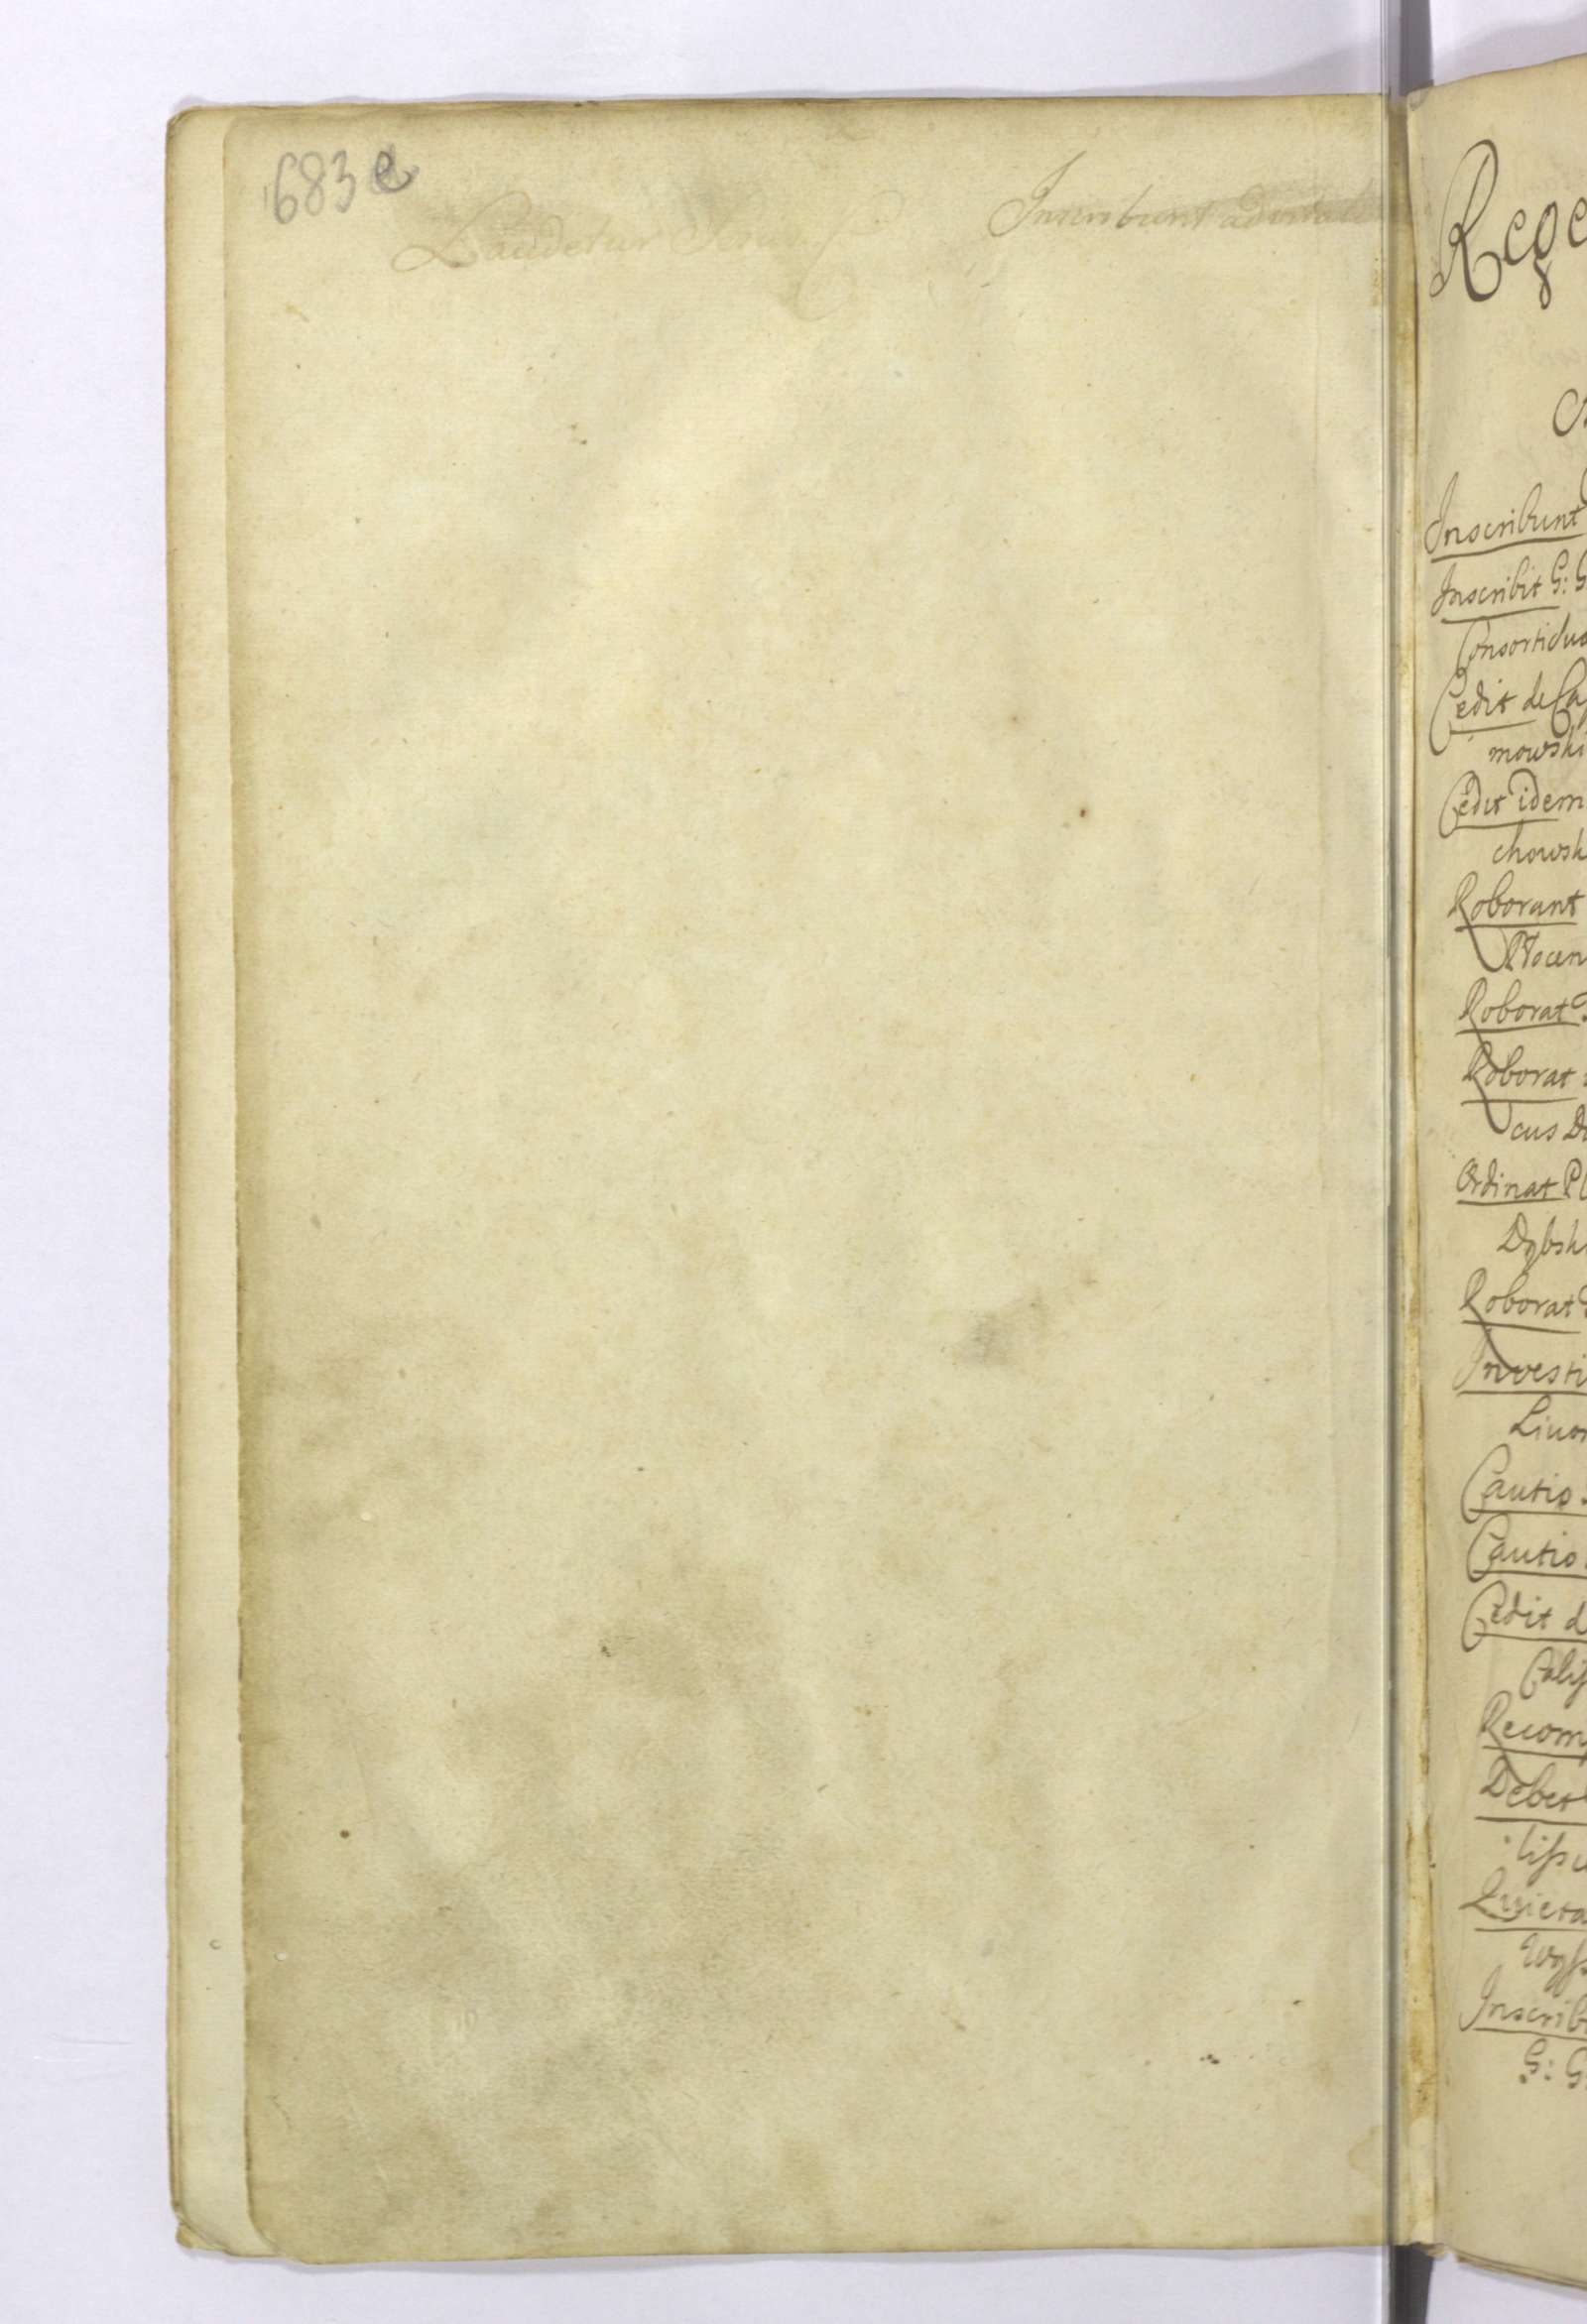 683 e
Laudetur
Inscribunt
Rege
Inscribunt
Inscribit G: G
Consortibus
Cedit de Ca
mowski
Cedit idem
chowsk
Roborant
Procen
Roborat
Roborat
cus D
Ordinat P
Dąbsk
Roborat
Investi
Livon
Cautio
Cautio
Cedit d
Calis
Recom
Debet
Quieta
Inscrib
G: G